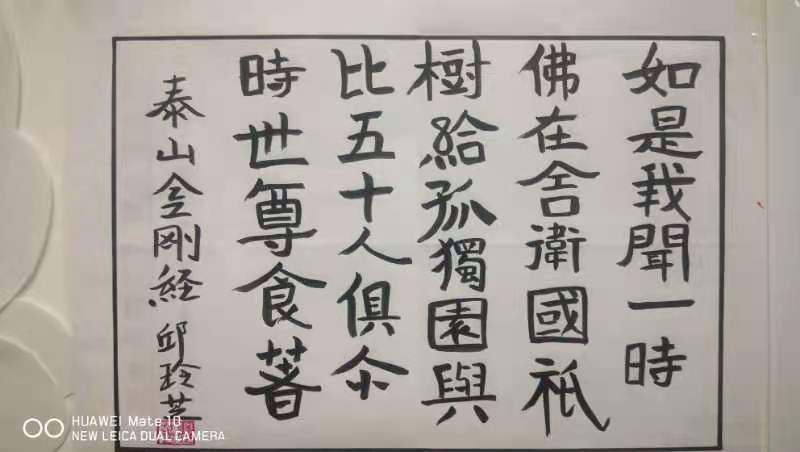 如是我聞一時
佛在舍衛國祇
樹給孤獨園與
比五十人俱尒
時世尊食著
泰山金剛経
邱玲芝
HUAWEI Mate 10
NEW LEICA DUAL CAMERA